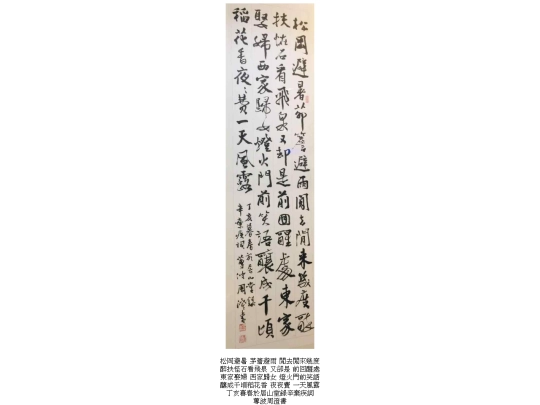 松岡避暑茆簷避雨閒去閒來幾度醉
扶怪石看飛泉又却是前回醒處東家
娶婦西家歸女燈火門前笑語釀成千頃
稻花香夜〻費一天風露
丁亥暮春於居山堂錄
辛棄疾詞 蓴波周澄書
松岡避暑 茅簷避雨 閒去閒來幾度
醉扶怪石看飛泉 又卻是 前回醒處
東家娶婦 西家歸女 燈火門前笑語
釀成千頃稻花香 夜夜費 一天風露
丁亥暮春於居山堂錄辛棄疾詞
蓴波周澄書